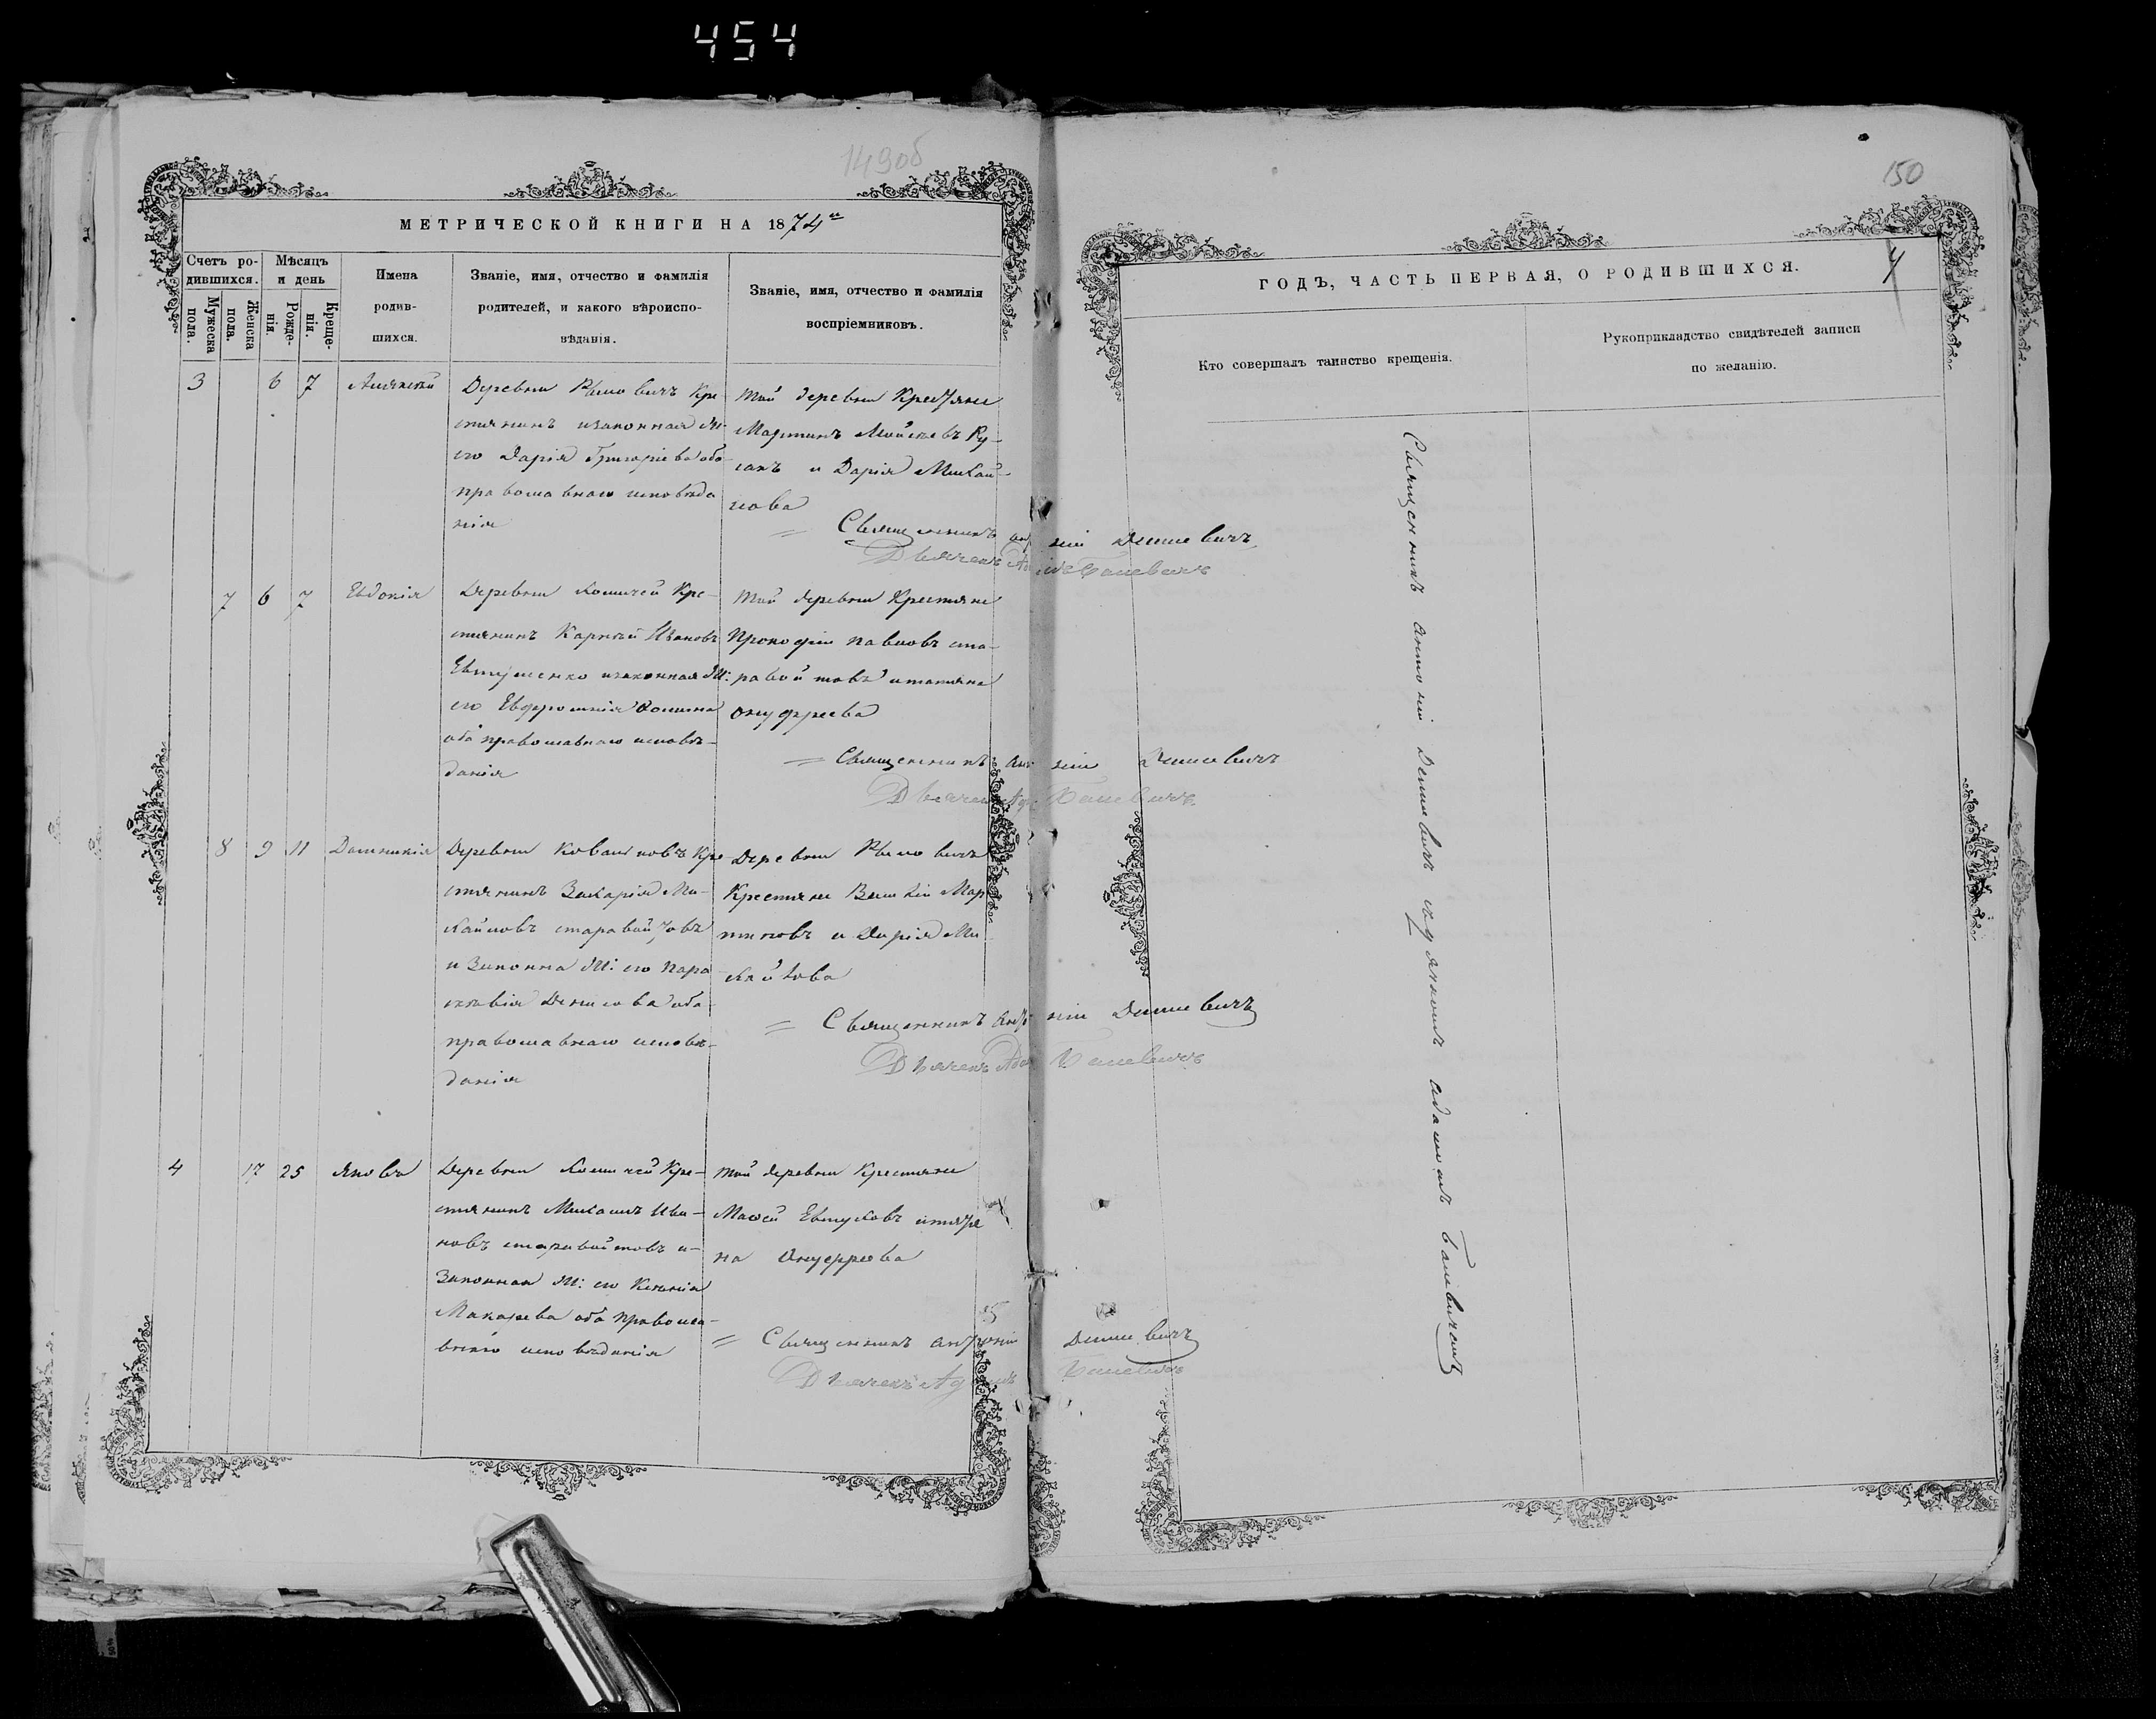 454
149об
МЕТРИЧЕСКОЙ КНИГИ НА 1874й
Счетъ ро-
дившихся.
Мужеска
пола.
Женска
пола.
Мѣсяцъ
и день
Рожде-
нія.
Креще-
нія.
Имена
родив-
шихся.
Званіе, имя, отчество и фамилія
родителей, и какого вѣроиспо-
вѣданія.
Званіе, имя, отчество и фамилія
воспріемниковъ.
3 6 7
Деревни Рымовичъ Кре
стянинъ изаконная Ж:
его Дарія Григоріева оба
православнаго исповѣда
нія
той деревни Крестяне
Мартинъ Мойсѣевъ Ру-
сакъ и Дарія Михай-
лова
= Священникъ антоній
Дьячекъ Адамъ
7 6 7 Евдокія
Деревни Кре-
стянинъ Карнѣй Ивановъ
Евтушенко изаконная Ж:
его Евфросинія
оба православнаго исповѣ-
данія
той деревни Крестяне
Прокофій павловъ ста-
равойтовъ итатяна
онуфріева
= Священникъ антоній
Дьячекъ Адамъ
8 9 11 Домникія
Деревни Кре-
стянинъ Захарія Ми-
хайловъ старавойтовъ
и Законна Ж: его Пара
скѣвія Денисова оба
православнаго исповѣ-
данія
Деревни Рымовичъ
Крестяне Василій Мар
тиновъ и Дарія Ми-
хайлова
= Священникъ антоній
Дьячекъ Адамъ
4 17 25 Яковъ
Деревни Кре-
стянинъ Михаилъ Ива-
новъ старавойтовъ и-
Законная Ж: его Ксенія
Макарева оба Правосла-
внаго исповѣданія
той деревни Крестяне
Мойсѣй Евтуховъ итатя
на Онуфріева
= Священникъ антоній
Дьячекъ Адамъ
150
4
ГОДЪ, ЧАСТЬ ПЕРВАЯ, О РОДИВШИХСЯ.
Кто совершалъ таинство крещенія.
Рукоприкладство свидѣтелей записи
по желанію.
Священникъ антоній съдячкомъ адамомъ